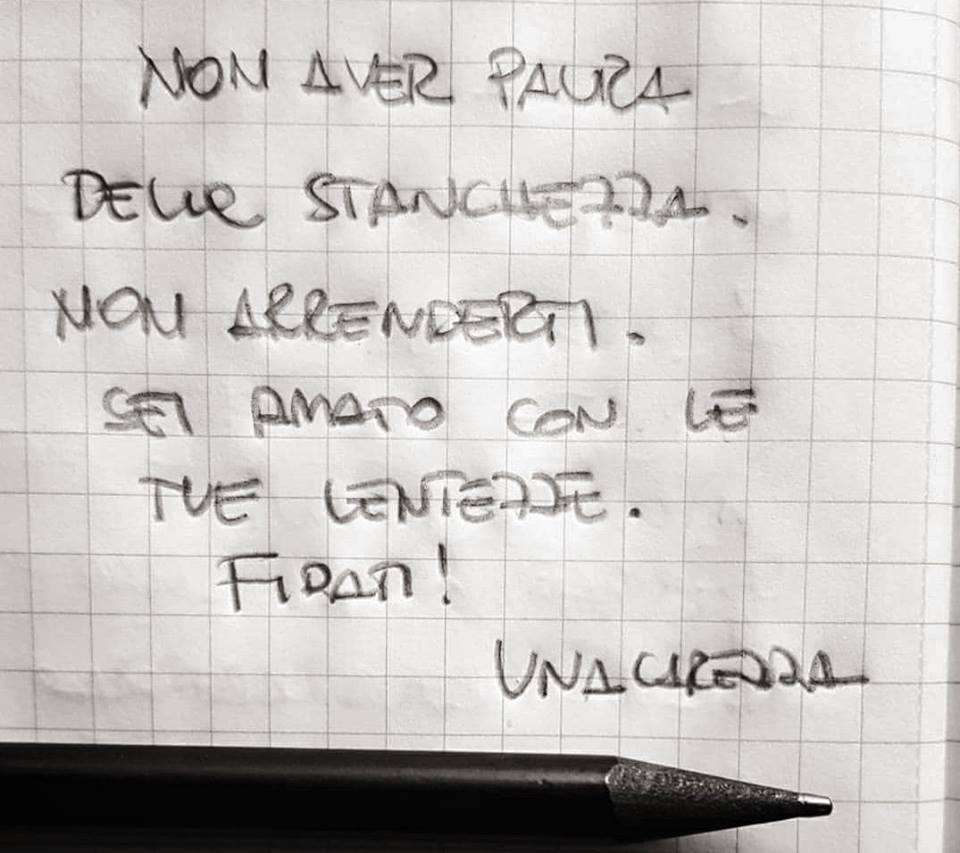 NON AVER PAURA
DELLA STANCHEZZA.
NON ARRENDERTI.
SEI AMATO CON LE
TUE LENTEZZE.
FIDATI!
UNACAREZZA